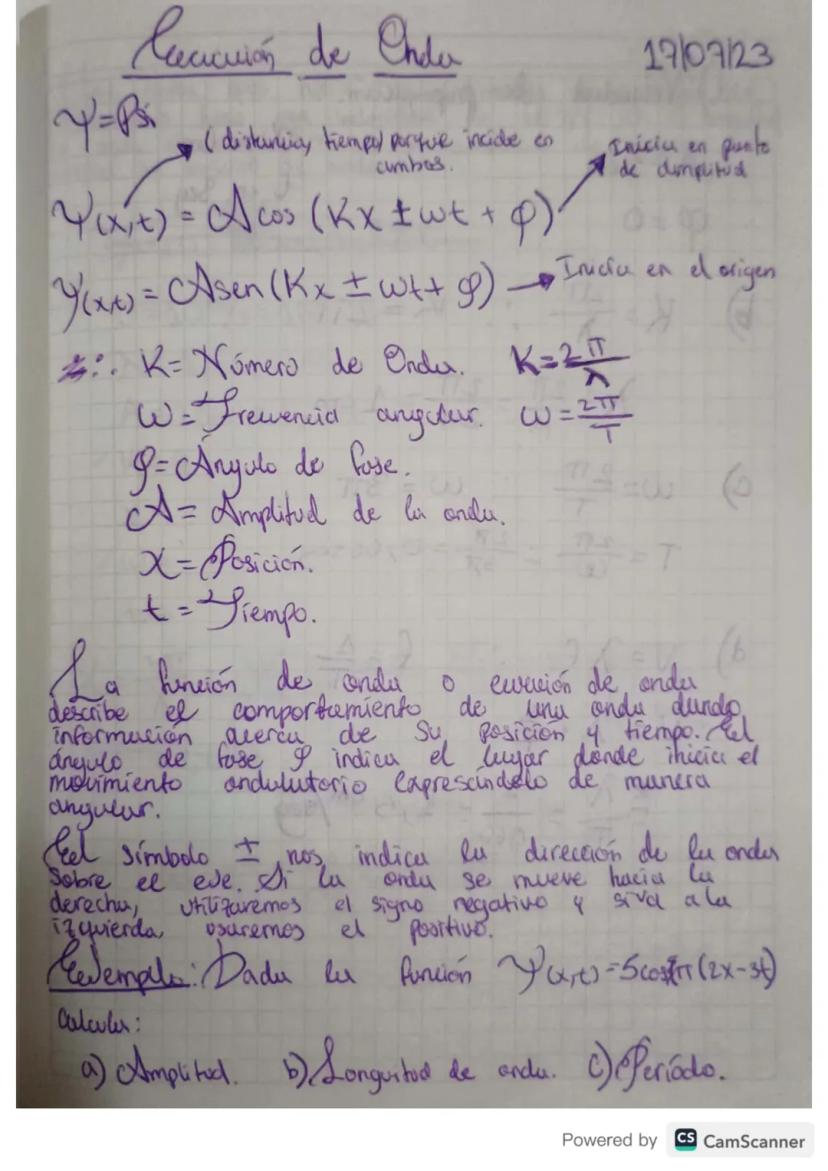 Ecuación de Onda 17/07/23
Ψ=Psi
(distancia, tiempo) porque incide en ambos.
Inicia en punto de amplitud
Ψ(x,t) = A cos (Kx ± wt + φ)
Ψ(x,t) = A sen (Kx ± wt + φ) → Inicia en el origen
∴ K = Número de Onda. K = 2π/λ
W = Frecuencia angular. ω = 2π/T
φ = Ángulo de fase.
A = Amplitud de la onda.
X = Posición.
t = Tiempo.
La función de onda o ecuación de onda
describe el comportamiento de una onda dando
información acerca de su posición y tiempo. El
ángulo de fase φ indica el lugar donde inicia el
movimiento ondulatorio expresándolo de manera
angular.
El símbolo ± nos indica la dirección de la onda
sobre el eje. Si la onda se mueve hacia la
derecha, utilizaremos el signo negativo y si va a la
izquierda, usaremos el positivo.
Ejemplo: Dada la función Ψ(x,t) = 5cos π(2x-3t)
Calcular:
a) Amplitud. b) Longuitud de onda. c) Período.
Powered by CS CamScanner